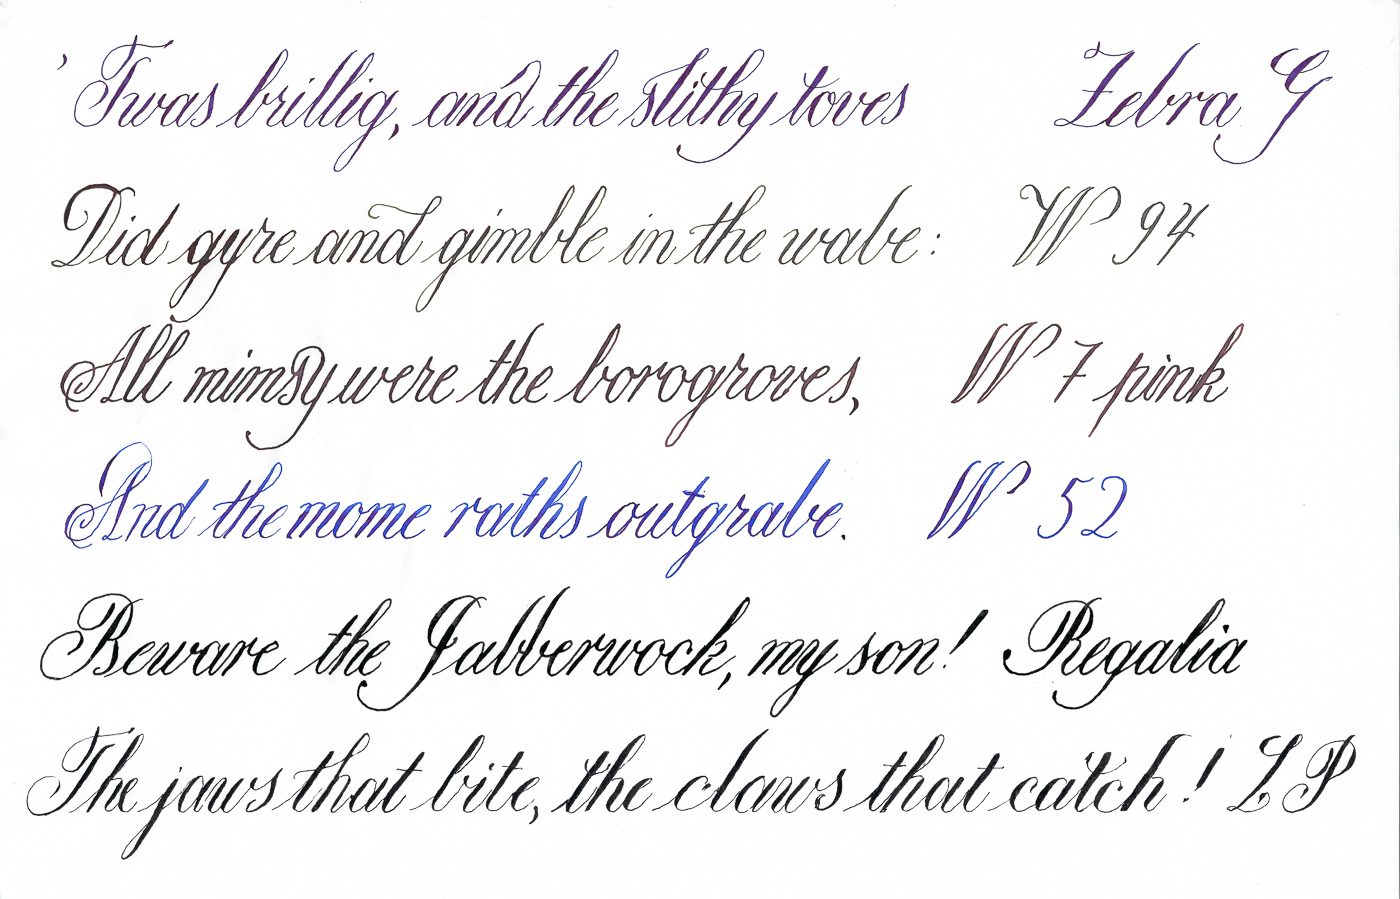 'Twas brillig, and the slithy toves Zebra G
Did gyre and gimble in the wabe: W 94
All mimsy were the borogroves, W 7 pink
And the mome raths outgrabe. W 52
Beware the Jabberwock, my son! Regalia
The jaws that bite, the claws that catch! LP